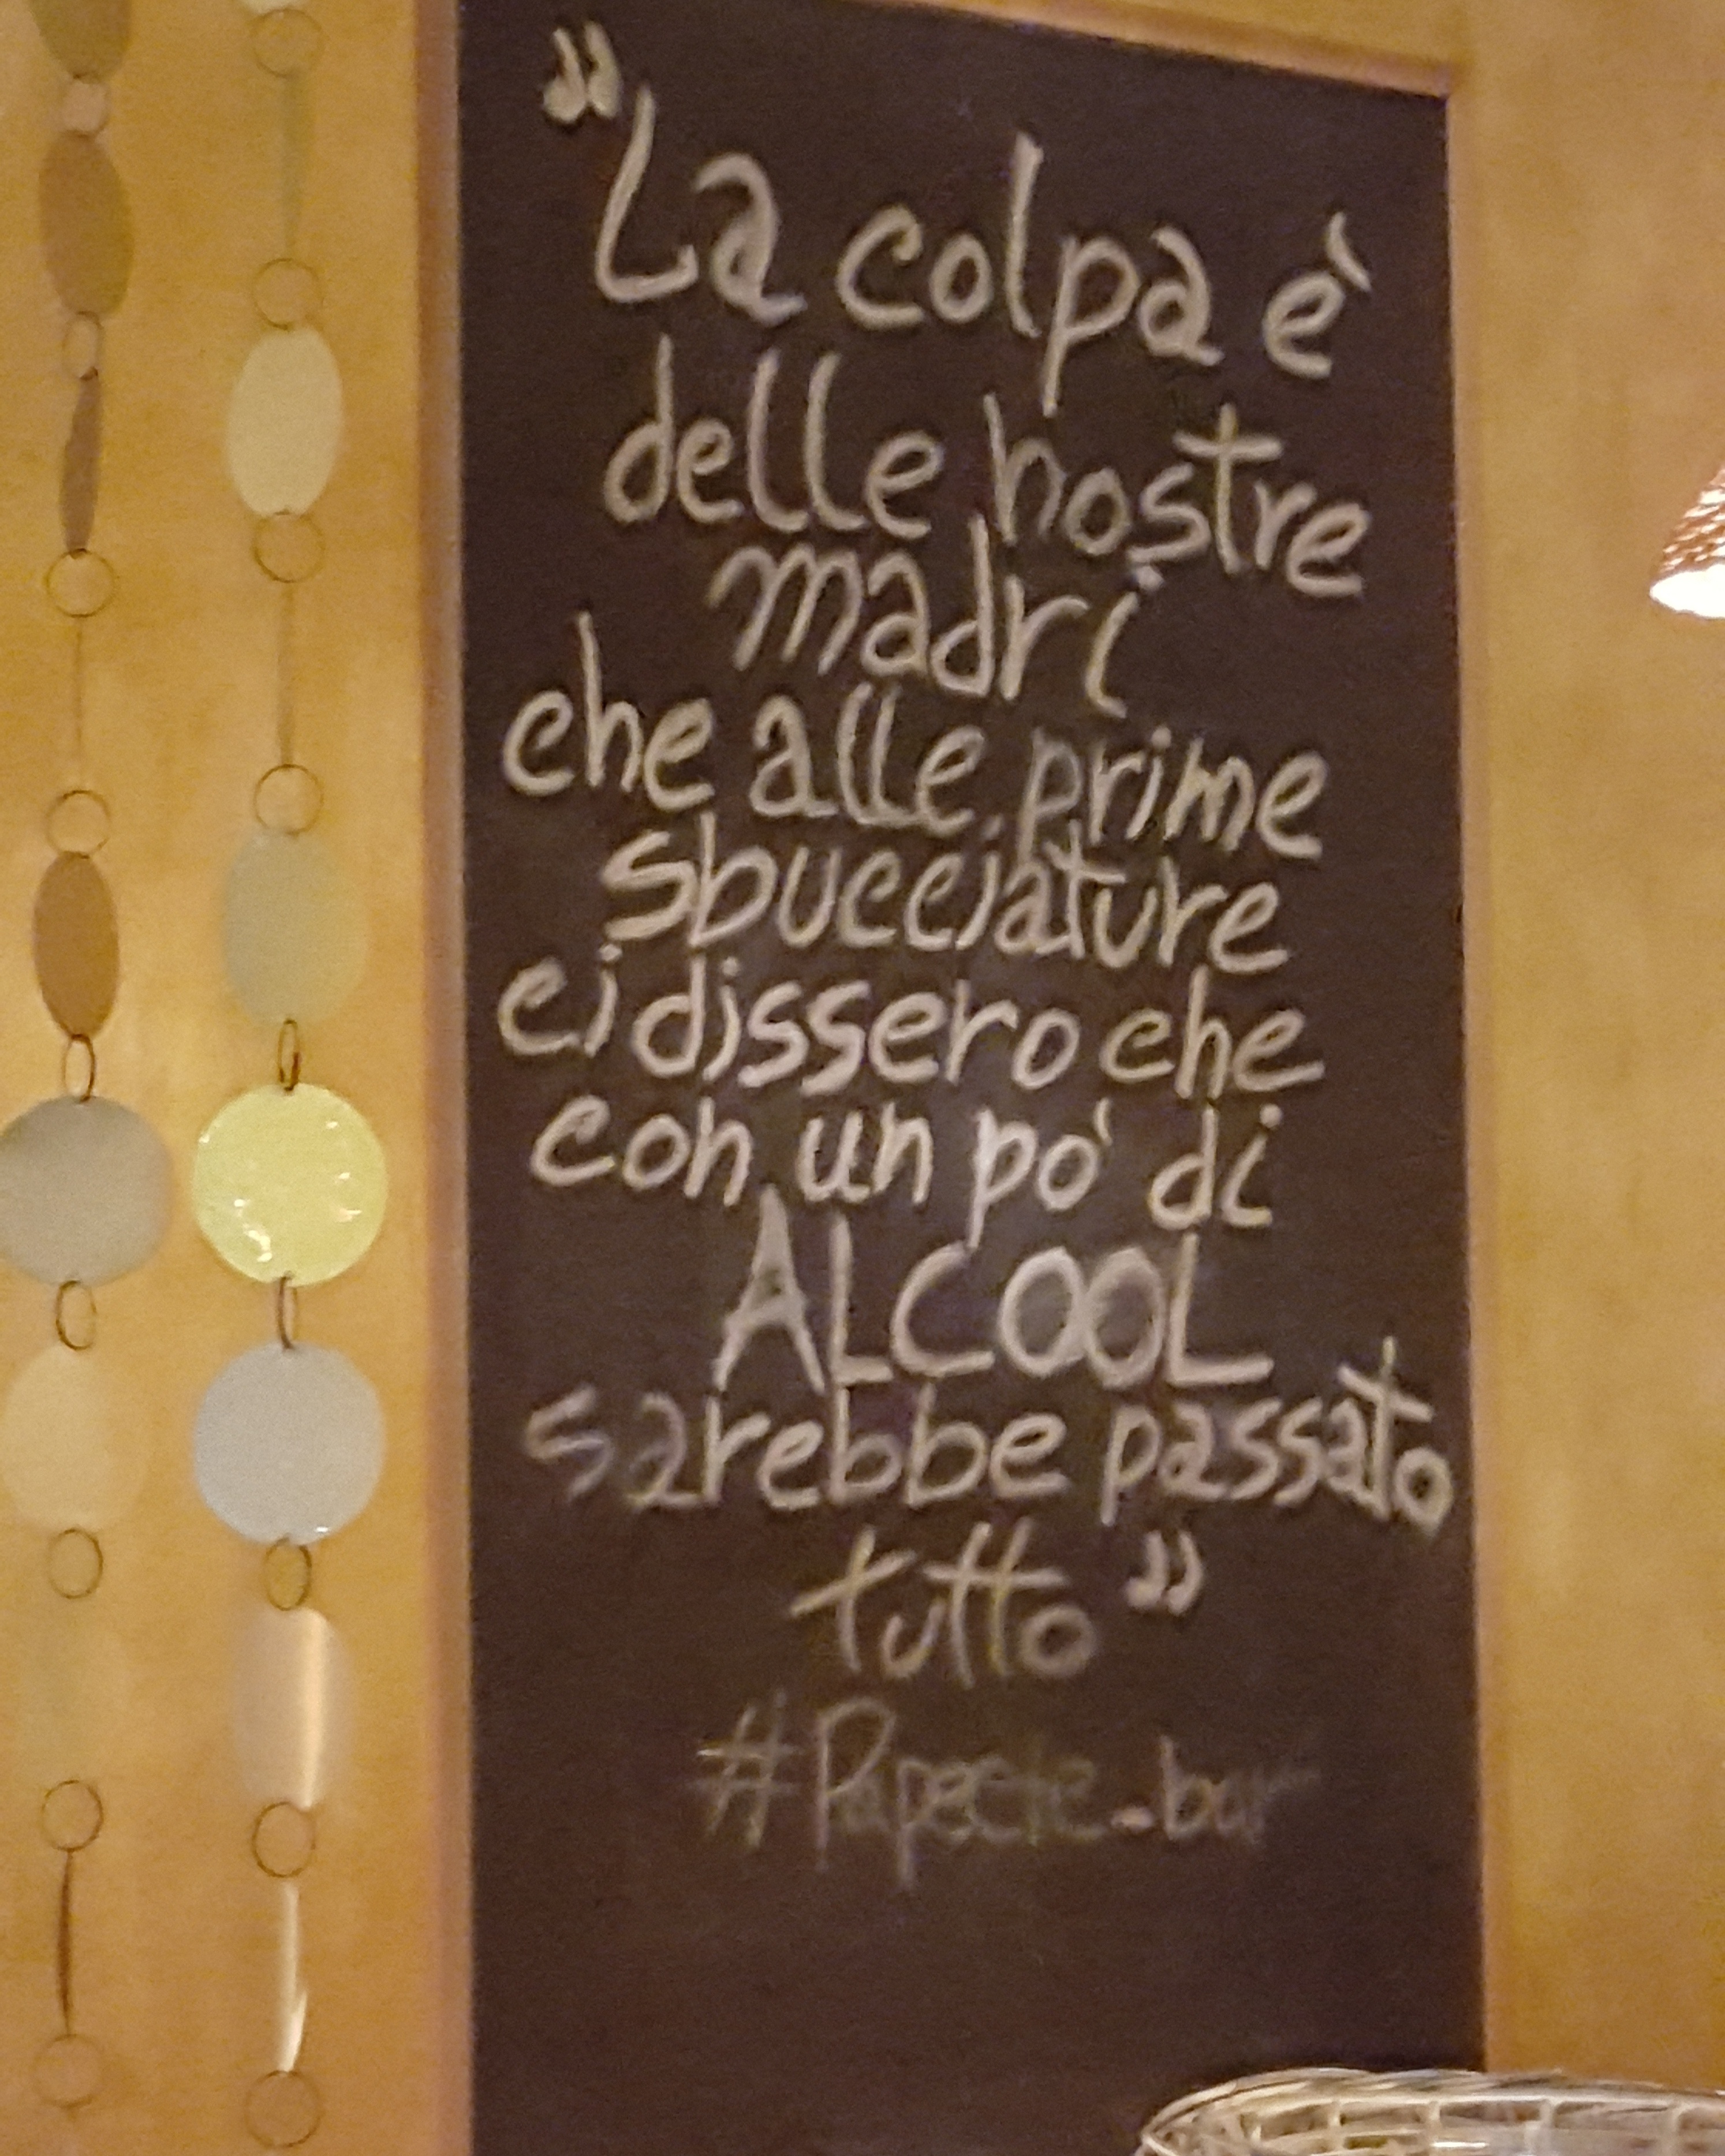 "La colpa è
delle nostre
madri
che alle prime
sbucciature
ci dissero che
con un po' di
ALCOOL
sarebbe passato
tutto"
#Papeete_bar